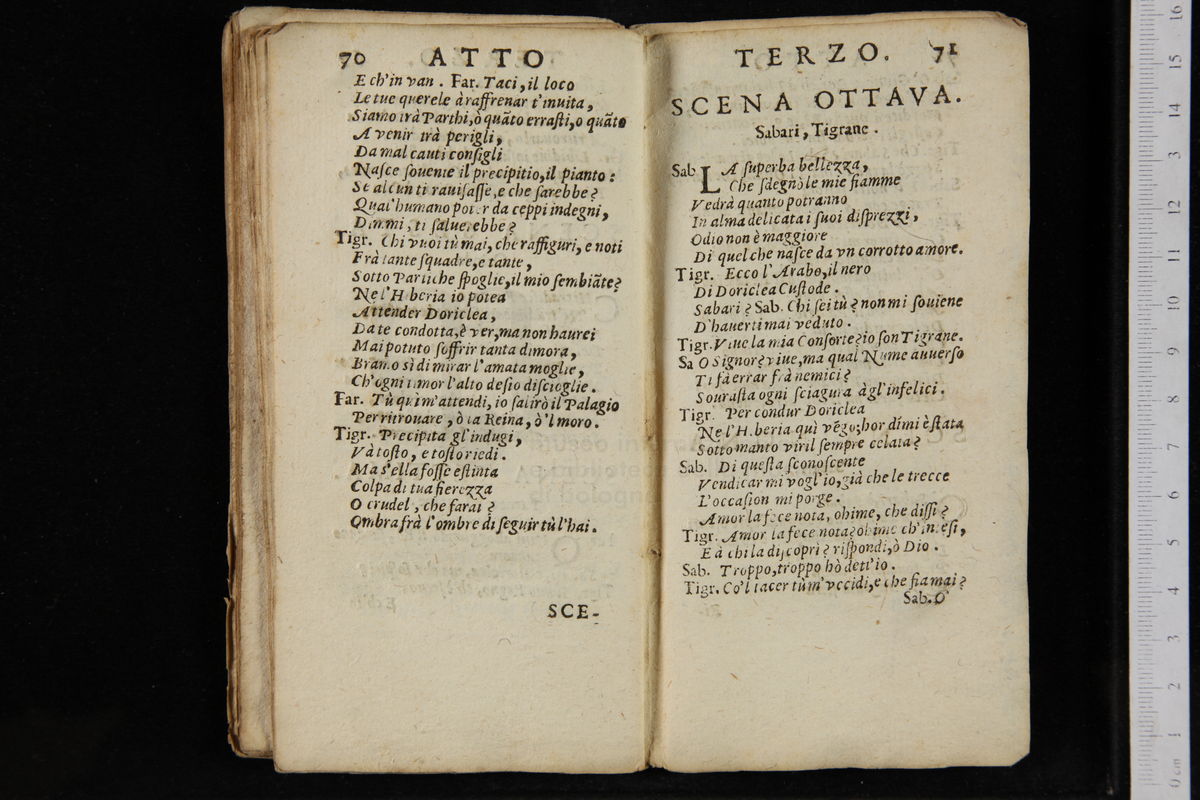 70 ATTO
E ch'in van . Far. Taci, il loco
Le tue querele à raffrenar t'inuita,
Siamo trà Parthi, ò quāto errasti, o quāto
A venir trà perigli,
Da mal cauti consigli
Nasce souente il precipitio, il pianto:
Se alcun ti rauisasse, e che sarebbe?
Qual' humano poter da ceppi indegni,
Dimmi, ti saluerebbe?
Tigr. Chi vuoi tù mai, che raffiguri, e noti
Frà tante squadre, e tante,
Sotto Partiche spoglie, il mio sembiāte?
Ne l'Hiberia io potea
Attender Doriclea,
Da te condotta, è ver, ma non haurei
Mai potuto soffrir tanta dimora,
Bramo sì di mirar l'amata moglie,
Ch'ogni timor l'alto desio discioglie.
Far. Tù quì m'attendi, io salirò il Palagio
Per ritrouare, ò la Reina, ò'l moro.
Tigr. Precipita gl'indugi,
Và tosto, e tosto riedi.
Ma s'ella fosse estinta
Colpa di tua fierezza
O crudel, che farai?
Ombra frà l'ombre di seguir tù l'hai.
SCE-
TERZO. 71
SCENA OTTAVA.
Sabari, Tigrane.
Sab. LA superba bellezza,
Che sdegnò le mie fiamme
Vedrà quanto potranno
In alma delicata i suoi disprezzi,
Odio non è maggiore
Di quel che nasce da vn corrotto amore.
Tigr. Ecco l'Arabo, il nero
Di Doriclea Custode.
Sabari? Sab. Chi sei tù? non mi souiene
D'hauerti mai veduto.
Tigr. Viue la mia Consorte? io son Tigrane.
Sa O Signor? viue, ma qual Nume auuerso
Ti fà errar frà nemici?
Sourasta ogni sciagura àgl'infelici.
Tigr. Per condur Doriclea
Ne l'Hiberia quì vēgo; hor dimi è stata
Sotto manto viril sempre celata?
Sab. Di questa sconoscente
Vendicar mi vogl'io, già che le trecce
L'occasion mi porge.
Amor la fece nota, ohime, che dissi?
Tigr. Amor la fece nota? ohime ch'intesi,
E à chi la discoprì? rispondi, ò Dio.
Sab. Troppo, troppo hò dett'io.
Tigr. Co'l tacer tù m'vccidi, e che fia mai?
Sab. O'